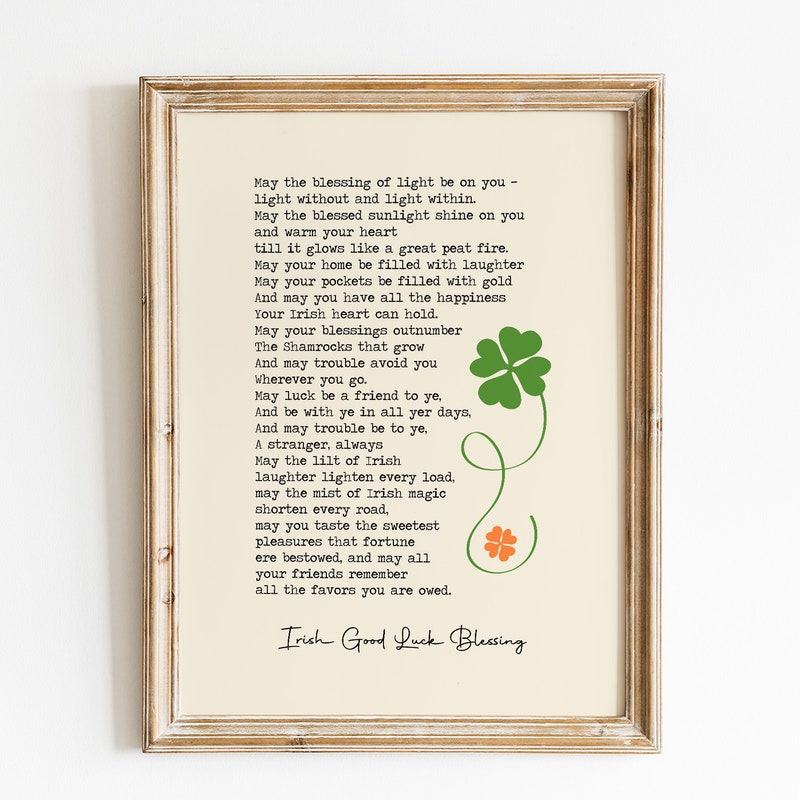 May the blessing of light be on you –
light without and light within.
May the blessed sunlight shine on you
and warm your heart
till it glows like a great peat fire.
May your home be filled with laughter
May your pockets be filled with gold
And may you have all the happiness
Your Irish heart can hold.
May your blessings outnumber
The Shamrocks that grow
And may trouble avoid you
Wherever you go.
May luck be a friend to ye,
And be with ye in all yer days,
And may trouble be to ye,
A stranger, always
May the lilt of Irish
laughter lighten every load,
may the mist of Irish magic
shorten every road,
may you taste the sweetest
pleasures that fortune
ere bestowed, and may all
your friends remember
all the favors you are owed.
Irish Good Luck Blessing